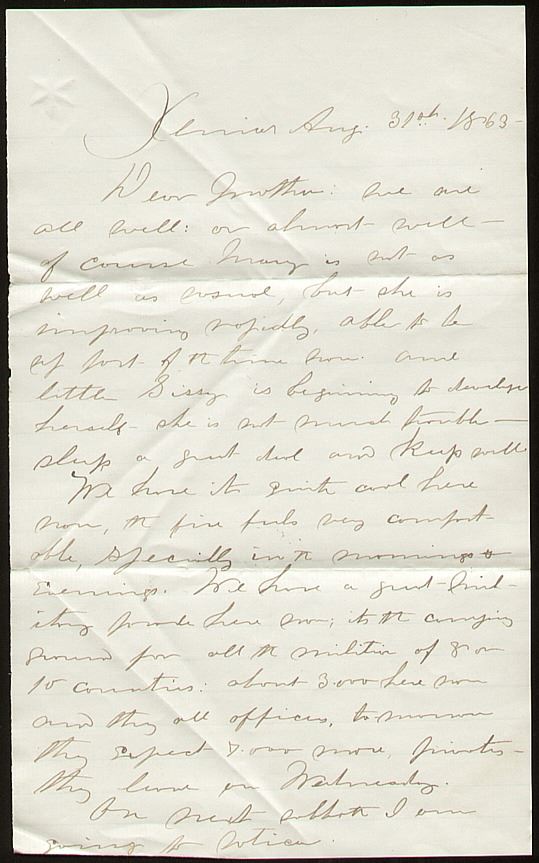 Xenia Aug. 31st. 1863-
Dear Mother: we are
all well: or almost well-
of course Mary is not as
well as usual, but she is
improving rapidly, able to be
up part of th time now. and
little Sissy is beginning to develope
herself- she is not much trouble-
sleeps a great deal and keeps well
We have it quite cool here
now, th fire feels very comfort-
able, specially in th mornings &
Evenings. We have a great mil-
itary parade here now; its th camping
ground for all th militia of 8 or
10 counties: about 3.000 here now
and they all officers, tomorrow
they expect 7.000 more, privates-
they leave on Wednesday.
On next sabbath I am
going to